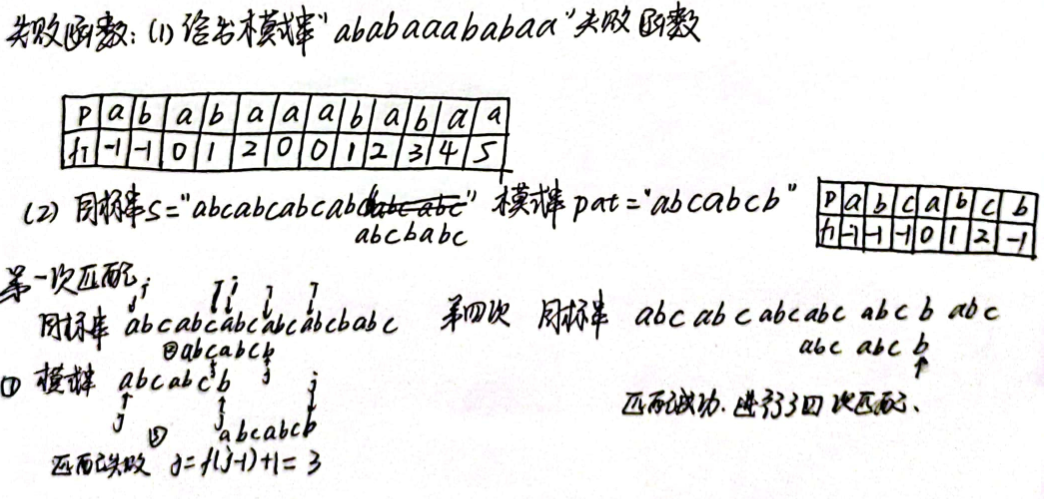 失败函数: (1) 给出模式串"ababaaababaa"失败函数
P a b a b a a a b a b a a
f -1 -1 0 1 2 0 0 1 2 3 4 5
(2) 目标串S="abcabcabcabc 模式串 pat="abcabcb"
abcbabc
P a b c a b c b
f -1 -1 -1 0 1 2 -1
第一次匹配:
目标串 abcabcabcabcabcbabc
② abcabcb
① 模式串 abcabcb
j
③ abcabcb
匹配失败 j=f(j-1)+1=3
第四次 目标串 abc abc abcabc abc b abc
abc abc b
匹配成功.进行了四次匹配.